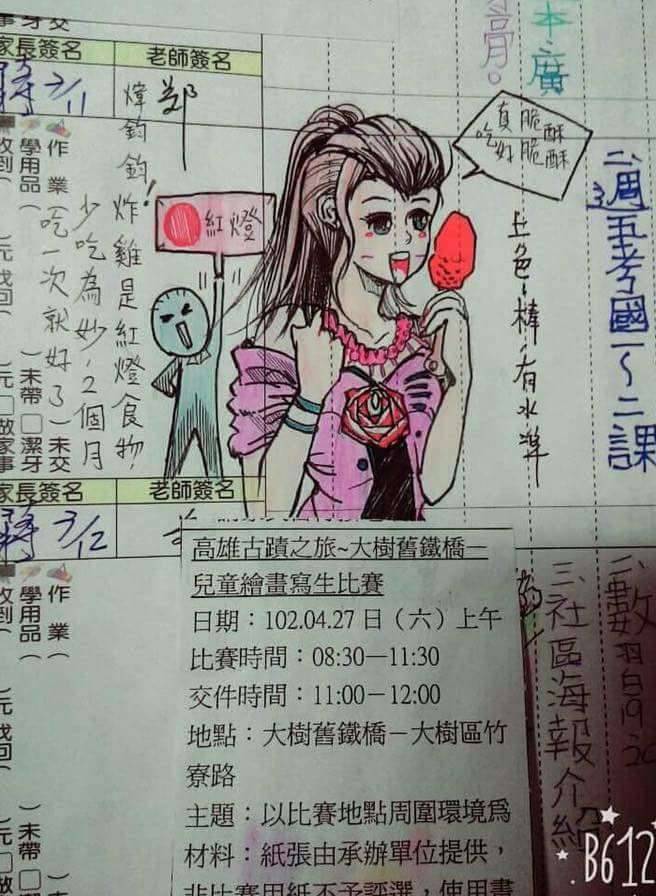 膏。
本廣
二、
週五考國一～二課
真脆酥
吃脆酥
好
上色：棒！有水準
家長簽名
老師簽名
蔣 3/11
鄭
煒鈞鈞！炸雞是紅燈食物，
少吃為妙，2個月
吃一次就好了
紅燈
作業
學用品
收到
元
找回
未交
未帶
潔牙
元
做家事
家長簽名
老師簽名
蔣 3/12
二、數
三、社區海報介紹
作業
學用品
收到
元
找回
未交
未帶
潔牙
元
高雄古蹟之旅~大樹舊鐵橋－
兒童繪畫寫生比賽
日期：102.04.27日（六）上午
比賽時間：08:30－11:30
交件時間：11:00－12:00
地點：大樹舊鐵橋－大樹區竹
寮路
主題：以比賽地點周圍環境為
材料：紙張由承辦單位提供，
非比賽用紙不予評選，使用畫
B612